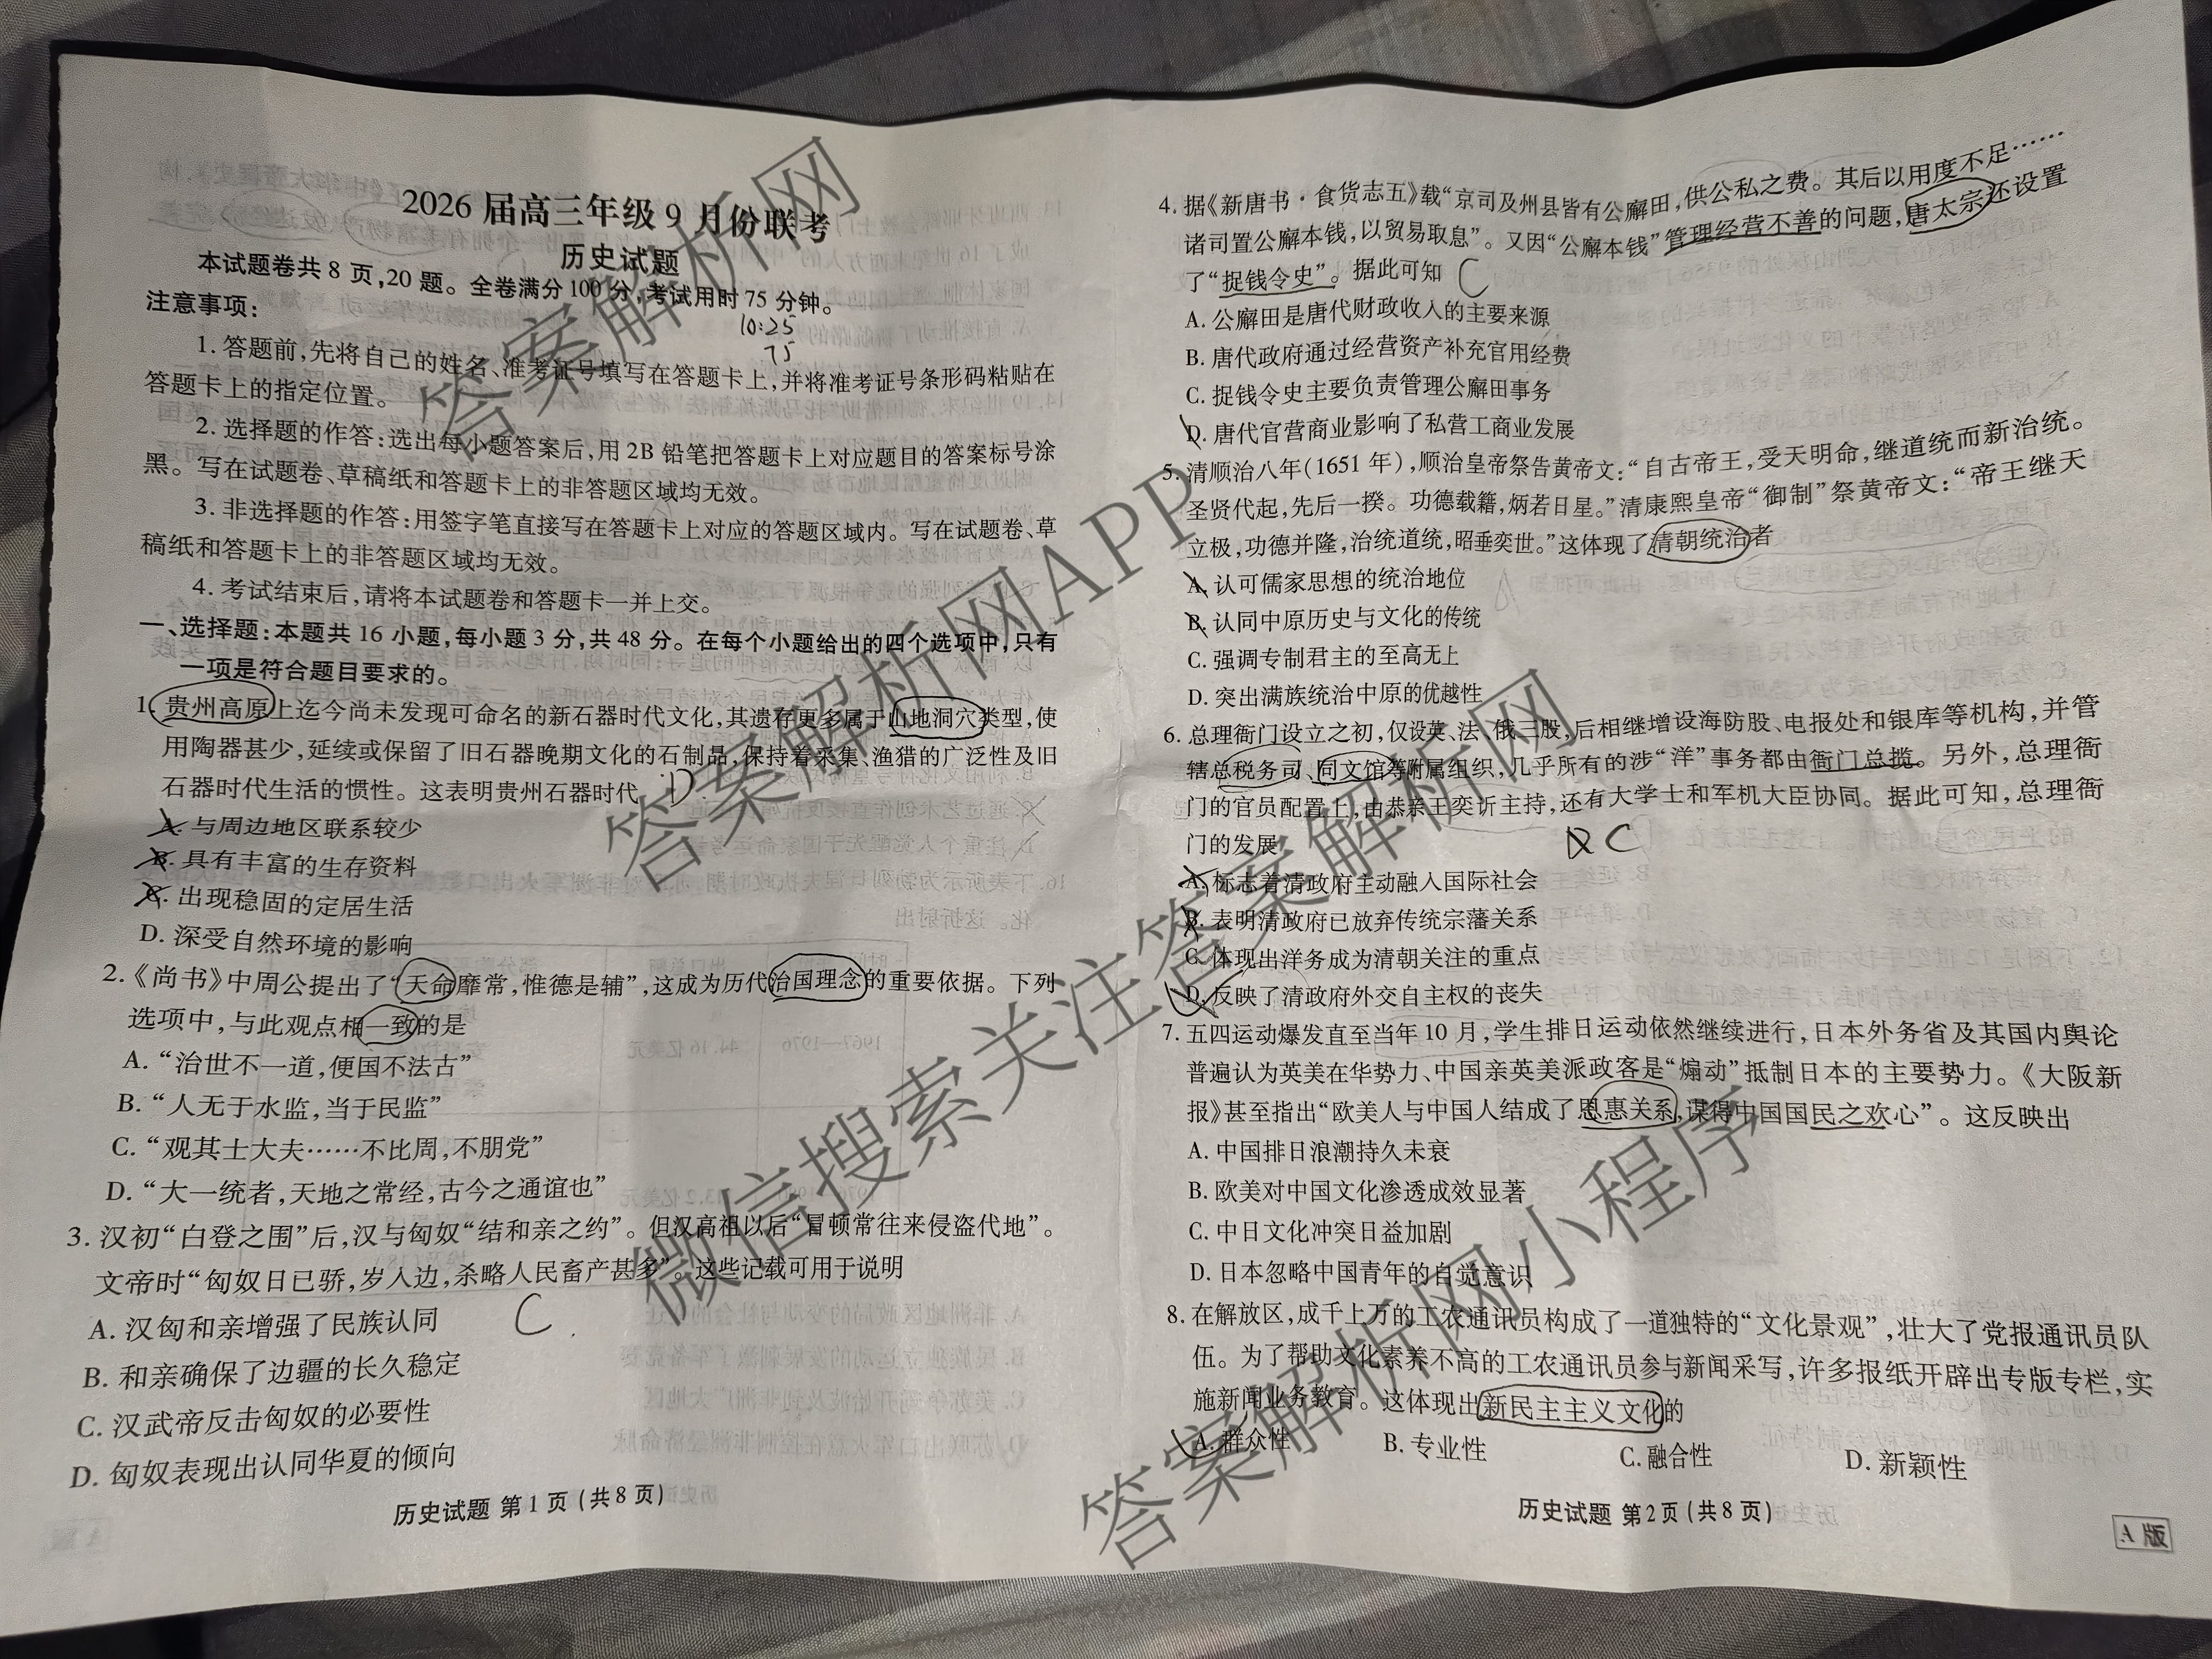 2026届高三年级9月份联考
历史试题
本试题卷共8页,20题。全卷满分100分,考试用时75分钟。
10:25
75
注意事项:
1. 答题前,先将自己的姓名、准考证号填写在答题卡上,并将准考证号条形码粘贴在
答题卡上的指定位置。
2. 选择题的作答:选出每小题答案后,用2B铅笔把答题卡上对应题目的答案标号涂
黑。写在试题卷、草稿纸和答题卡上的非答题区域均无效。
3. 非选择题的作答:用签字笔直接写在答题卡上对应的答题区域内。写在试题卷、草
稿纸和答题卡上的非答题区域均无效。
4. 考试结束后,请将本试题卷和答题卡一并上交。
一、选择题:本题共16小题,每小题3分,共48分。在每个小题给出的四个选项中,只有
一项是符合题目要求的。
1. 贵州高原上迄今尚未发现可命名的新石器时代文化,其遗存更多属于山地洞穴类型,使
用陶器甚少,延续或保留了旧石器晚期文化的石制品,保持着采集、渔猎的广泛性及旧
石器时代生活的惯性。这表明贵州石器时代 D
A. 与周边地区联系较少
B. 具有丰富的生存资料
C. 出现稳固的定居生活
D. 深受自然环境的影响
2.《尚书》中周公提出了“天命靡常,惟德是辅”,这成为历代治国理念的重要依据。下列
选项中,与此观点相一致的是
A. “治世不一道,便国不法古”
B. “人无于水监,当于民监”
C. “观其士大夫……不比周,不朋党”
D. “大一统者,天地之常经,古今之通谊也”
3. 汉初“白登之围”后,汉与匈奴“结和亲之约”。但汉高祖以后“冒顿常往来侵盗代地”。
文帝时“匈奴日已骄,岁入边,杀略人民畜产甚多”。这些记载可用于说明
C
A. 汉匈和亲增强了民族认同
B. 和亲确保了边疆的长久稳定
C. 汉武帝反击匈奴的必要性
D. 匈奴表现出认同华夏的倾向
历史试题 第1页(共8页)
4. 据《新唐书·食货志五》载“京司及州县皆有公廨田,供公私之费。其后以用度不足……
诸司置公廨本钱,以贸易取息”。又因“公廨本钱”管理经营不善的问题,唐太宗还设置
了“捉钱令史”。据此可知 C
A. 公廨田是唐代财政收入的主要来源
B. 唐代政府通过经营资产补充官用经费
C. 捉钱令史主要负责管理公廨田事务
D. 唐代官营商业影响了私营工商业发展
5. 清顺治八年(1651年),顺治皇帝祭告黄帝文:“自古帝王,受天明命,继道统而新治统。
圣贤代起,先后一揆。功德载籍,炳若日星。”清康熙皇帝“御制”祭黄帝文:“帝王继天
立极,功德并隆,治统道统,昭垂奕世。”这体现了清朝统治者
A. 认可儒家思想的统治地位
B. 认同中原历史与文化的传统
C. 强调专制君主的至高无上
D. 突出满族统治中原的优越性
6. 总理衙门设立之初,仅设英、法、俄三股,后相继增设海防股、电报处和银库等机构,并管
辖总税务司、同文馆等附属组织,几乎所有的涉“洋”事务都由衙门总揽。另外,总理衙
门的官员配置上,由恭亲王奕䜣主持,还有大学士和军机大臣协同。据此可知,总理衙
门的发展
C
A. 标志着清政府主动融入国际社会
B. 表明清政府已放弃传统宗藩关系
C. 体现出洋务成为清朝关注的重点
D. 反映了清政府外交自主权的丧失
7. 五四运动爆发直至当年10月,学生排日运动依然继续进行,日本外务省及其国内舆论
普遍认为英美在华势力、中国亲英美派政客是“煽动”抵制日本的主要势力。《大阪新
报》甚至指出“欧美人与中国人结成了恩惠关系,谋得中国国民之欢心”。这反映出
A. 中国排日浪潮持久未衰
B. 欧美对中国文化渗透成效显著
C. 中日文化冲突日益加剧
D. 日本忽略中国青年的自觉意识
8. 在解放区,成千上万的工农通讯员构成了一道独特的“文化景观”,壮大了党报通讯员队
伍。为了帮助文化素养不高的工农通讯员参与新闻采写,许多报纸开辟出专版专栏,实
施新闻业务教育。这体现出新民主主义文化的
A. 群众性 B. 专业性 C. 融合性 D. 新颖性
历史试题 第2页(共8页)
A版
答案解析网
答案解析网APP
微信搜索关注答案解析网
答案解析网小程序